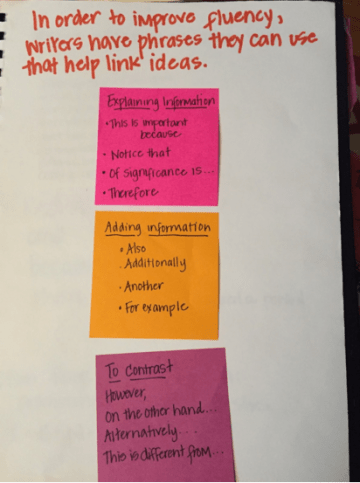 In order to improve fluency,
writers have phrases they can use
that help link ideas.
Explaining Information
• This is important
because
• Notice that
• Of significance is...
• Therefore
Adding information
• Also
• Additionally
• Another
• For example
To Contrast
However,
On the other hand...
Alternatively...
This is different from...